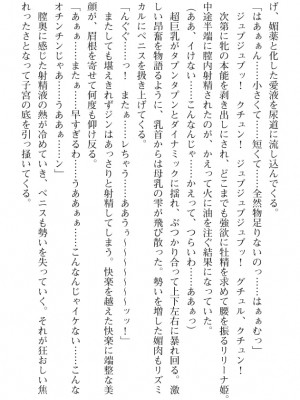 げ、媚薬と化した愛液を尿道に流し込んでくる。
「はぁぁん……小さくて、短くて……全然物足りないのっ……はぁぁむっ」
ジュブジュブッ！　クチュン！　ジュブジュブジュブッ！　グチュル、クチュン！
次第に牝の本能を剥き出しにされ、どこまでも強欲に牡精を求めて腰を振るリリーナ姫。
中途半端に膣内射精されたのが、かえって火に油を注ぐ結果になっていた。
「ああ、イケない……こんなんじゃ……かえって、つらいわ……ああぁっ」
超巨乳がタプンタプンとダイナミックに揺れ、ぶつかり合って上下左右に暴れ回る。激
しい昂奮を物語るように、乳首からは母乳の雫が飛び散った。勢いを増した媚肉もリズミ
カルにペニスを扱き上げてくる。
「んくぐ……っ！　またぁ……レちゃう……ああうぅ～～～～～～ッッ！」
またしても堪えきれずジンはあっさりと射精してしまう。快楽を越えた快楽に端整な美
顔が、眉根を寄せて何度も仰け反る。
「あぁぁ……またぁ……早すぎるわ……うああぁぁ……こんなんじゃイケない……こんな
オチンチンじゃあ……うああぁぁン」
膣奥に感じた射精液の熱が冷めていき、ペニスも勢いを失っていく。それが狂おしい焦
れったさとなって子宮の底を引っ掻いてくる。